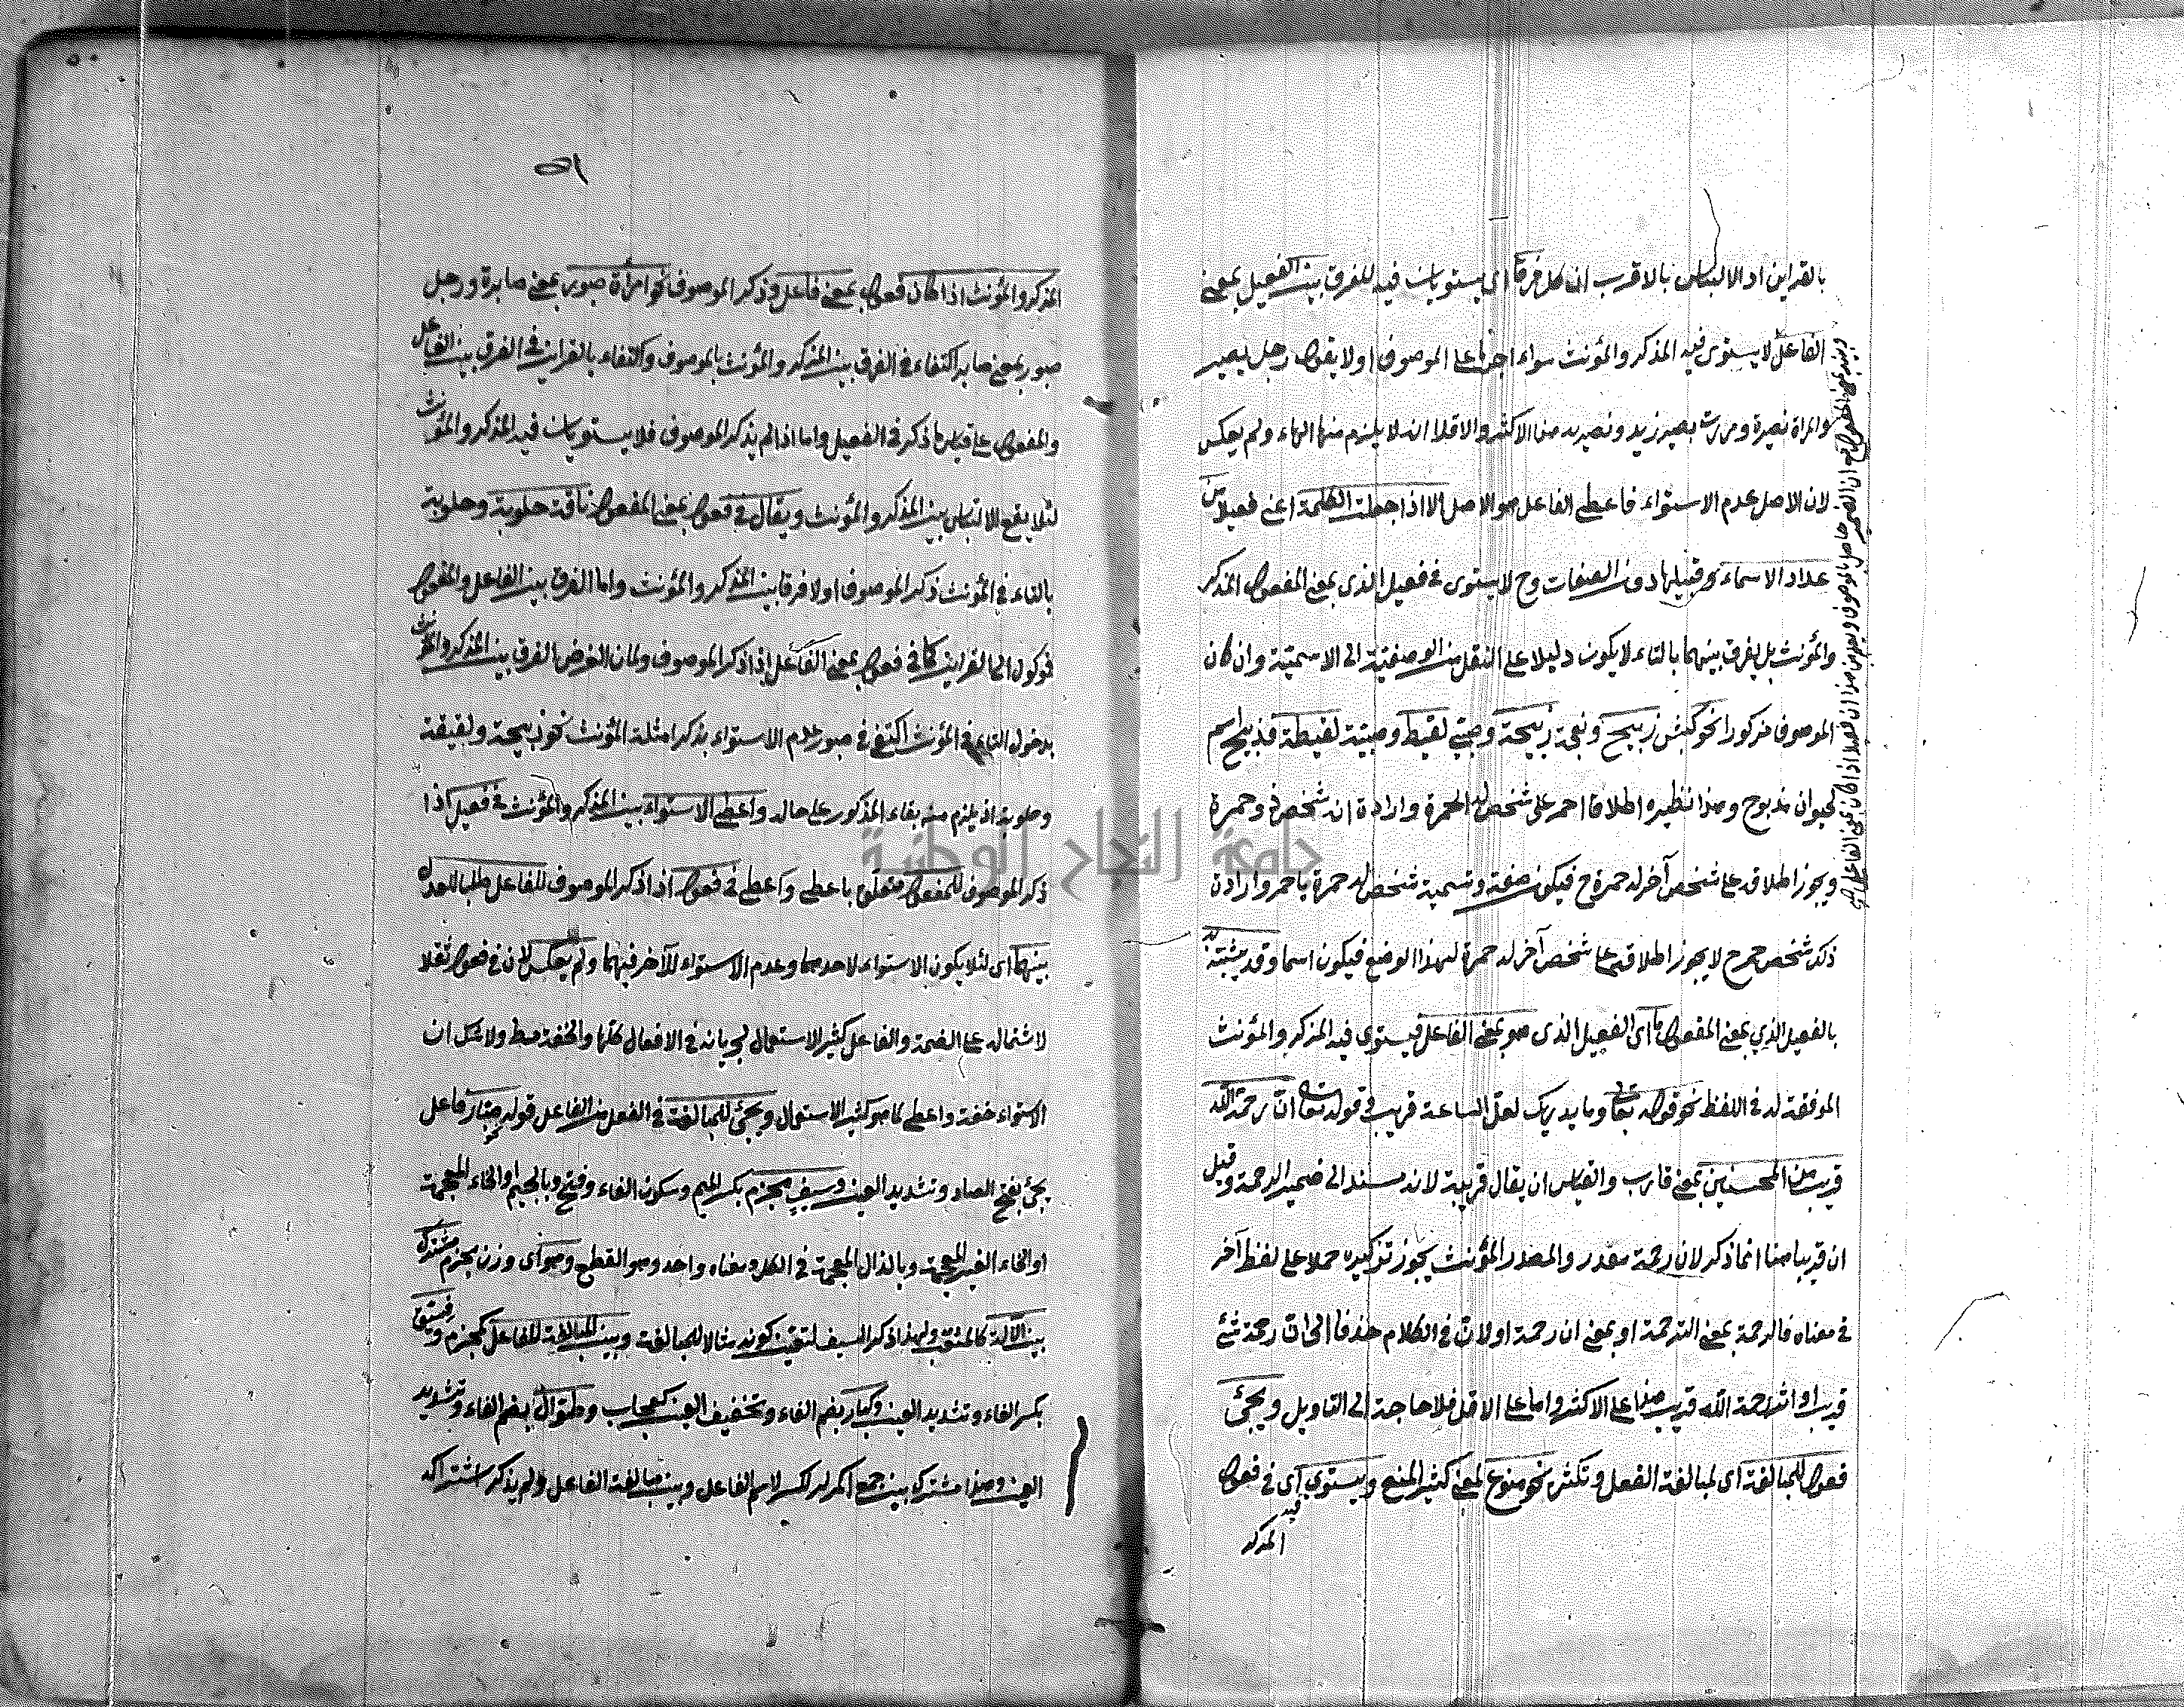 بالقراين اذ الالتباس بالاقرب ان كل فرقا اى يستويان فيه للفرق بين الفعيل بمعنى
الفاعل لا يستوى فيه المذكر والمؤنث سواء اجرى على الموصوف اولا يقول رجل نصير
وامراة نصيرة ومررت بنصير زيد ونصيرته هذا الاكثر والا قلا انه لا يلزم منها الهاء ولم يعكس
لان الاصل عدم الاستواء فاعطى الفاعل هو الاصل الا اذا جعلت الكلمة اعنى فعيلا من
عداد الاسماء وقبيلها دون الصفات وح لا يستوى فى فعيل الذى بمعنى المفعول المذكر
والمؤنث بل يفرق بينهما بالتاء لا يكون دليلا على النقل من الوصفية الى الاسمية وان كان
الموصوف مذكورا نحو كبش ذبيح ونعجة ذبيحة وصبى لقيط وصبية لقيطة فذبيح اسم
لحيوان مذبوح وهذا نظيره اطلاق احمر على شخص له الحمرة وارادة انه شخص ذو حمرة
ويجوز اطلاقه على شخص آخر له حمرة ح فيكون صفة وتسمية شخص له حمرة باحمر وارادة
ذلك شخص ح لا يجوز اطلاقه على شخص آخر له حمرة لهذا الوضع فيكون اسما وقد يشبه به
بالفعيل الذى بمعنى المفعول ما اى الفعيل الذى هو بمعنى الفاعل فيستوى فيه المذكر والمؤنث
الموفقة له فى اللفظ نحو قوله تعالى وما يدريك لعل الساعة قريب وقوله تعالى ان رحمة الله
قريب من المحسنين بمعنى قارب والقياس ان يقال قريبة لانه مسند الى ضمير الرحمة وقيل
ان قريبا هنا انما ذكر لان رحمة مصدر والمصدر المؤنث يجوز تذكيره حملا على لفظ آخر
فى معناه فالرحمة بمعنى الترحمة او بمعنى ان رحمة اولان فى الكلام حذفا اى ان رحمة شئ
قريب او اثر رحمة الله قريب هذا على الاكثر واما على الاقل فلا حاجة الى التاويل ويجئ
فعول للمبالغة اى لمبالغة الفعل وتكثره نحو منوع بمعنى كثير المنع ويستوى اى فى فعول
فيه
المذكر
٥١
المذكر والمؤنث اذا كان فعول بمعنى فاعل وذكر الموصوف نحو امرأة صبور بمعنى صابرة ورجل
صبور بمعنى صابر اكتفاء فى الفرق بين المذكر والمؤنث بالموصوف واكتفاء بالقراين فى الفرق بين الفاعل
والمفعول على قياس ما ذكر فى الفعيل واما اذا لم يذكر الموصوف فلا يستويان فيه المذكر والمؤنث
لئلا يقع الالتباس بين المذكر والمؤنث ويقال فى فعول بمعنى المفعول ناقة حلوبة وحلوبة
بالتاء فى المؤنث ذكر الموصوف اولا فرقا بين المذكر والمؤنث واما الفرق بين الفاعل والمفعول
فموكول الى القراين كما فى فعول بمعنى الفاعل اذا ذكر الموصوف ولما كان الغرض الفرق بين المذكر والمؤنث
بدخول التاء فى المؤنث اكتفى فى صور عدم الاستواء بذكر امثلة المؤنث نحو ذبيحة ولقيطة
وحلوبة اذ يلزم منه بقاء المذكور على حاله واعطى الاستواء بين المذكر والمؤنث فى فعيل اذا
ذكر الموصوف للمفعول متعلق باعطى واعطى فى فعول اذا ذكر الموصوف للفاعل طلبا للعدل
بينهما اى لئلا يكون الاستواء لاحدهما وعدم الاستواء للآخر فيهما ولم يعكس لان فى فعول ثقلا
لاشتماله على الضمة والفاعل كثير الاستعمال لجريانه فى الافعال كلها والخفة ولا شك ان
الاستواء خفة واعطى لما هو كثير الاستعمال ويجئ للمبالغة فى الفعل من الفاعل قوله صبار فاعل
يجئ بفتح الصاد وتشديد العين وسيف مجزم بكسر الميم وسكون الفاء وفتح وبالجيم او الخاء المعجمة
او الحاء الغير المعجمة وبالذال المعجمة فى الكل ومعناه واحد وهو القطع وهو اى وزن مجزم مشترك
بين الآلة كالمثقب ولهذا ذكر السيف لتعين كونه مثالا للمبالغة وبين المبالغة للفاعل كمجزم وفسيق
بكسر الفاء وتشديد العين وكبار بضم الفاء وتخفيف العين كعجاب وطوال بضم الفاء وتشديد
العين وهذا مشترك بين جمع المكسر لاسم الفاعل وبين مبالغة الفاعل ولم يذكر اشتراكه
جامعة النجاح الوطنية